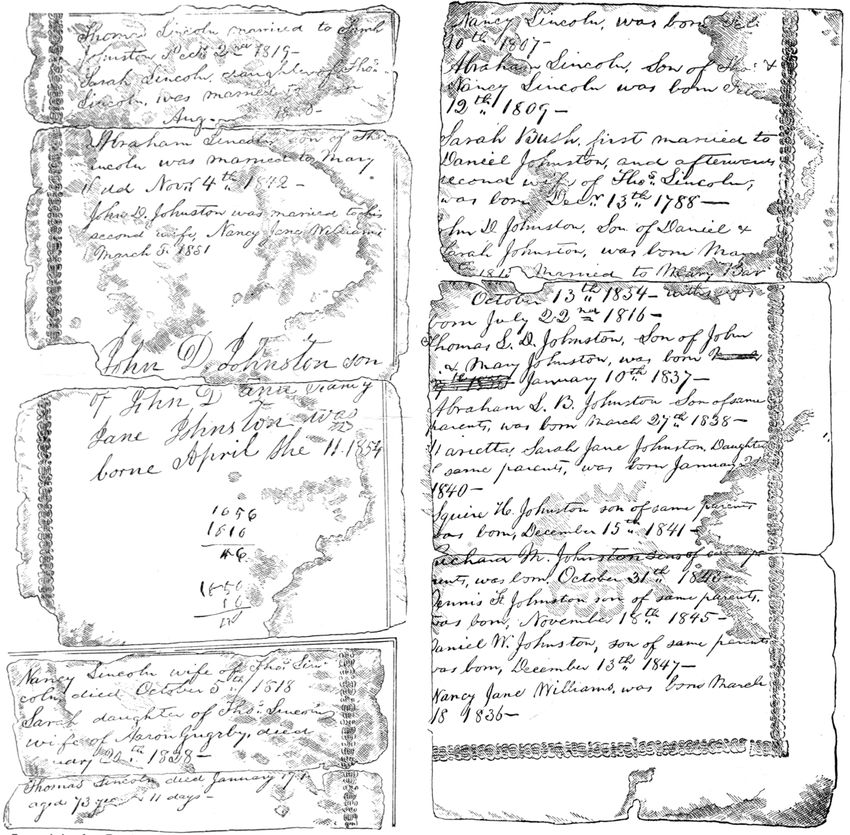 Thomas Lincoln married to Sarah
Johnston Decr 2nd 1819—
Sarah Lincoln, daughter of Thos.
Lincoln, was married to
Aug—
Abraham Lincoln, son of Thos.
incoln was married to Mary
Novr 4th 1842—
John D. Johnston was married to his
second wife, Nancy Jane Williams
March 5. 1851
John D. Johnston son
of John D ann Nancy
Jane Johnston was
borne April the 11. 1854
1656
1616
46
1656
16
Nancy Lincoln wife of Thos. Lin-
coln, died October 5th 1818
Sarah daughter of Thos. Lincoln
wife of Aaron Grigsby, died
uary 20th 1828—
Thomas Lincoln died January 17
aged 73 11 days—
Nancy Lincoln, was born Feb.
10th 1807—
Abraham Lincoln, Son of Thos. &
Nancy Lincoln was born Feb
12th 1809—
Sarah Bush, first married to
Daniel Johnston, and afterwards
second wife of Thos. Lincoln,
was born Decr 13th 1788—
ohn D Johnston, Son of Daniel &
Sarah Johnston, was born May
Married to Mary Bar
October 13th 1834— who was
born July 22nd 1816—
Thomas L. D. Johnston, Son of John
& Mary Johnston, was born
January 10th 1837—
Abraham L. B. Johnston Son of same
parents, was born March 27th 1838—
Marietta, Sarah Jane Johnston, Daughter
f same parents, was born January
1840—
Squire H. Johnston son of same parents
was born, December 15th 1841—
Richard M. Johnston son of same pa
rents, was born, October 31th
Dennis F. Johnston son of same parents,
was born, November 18th 1845—
Daniel W. Johnston, son of same parents
was born, December 13th 1847—
Nancy Jane Williams, was born March
18 1836—